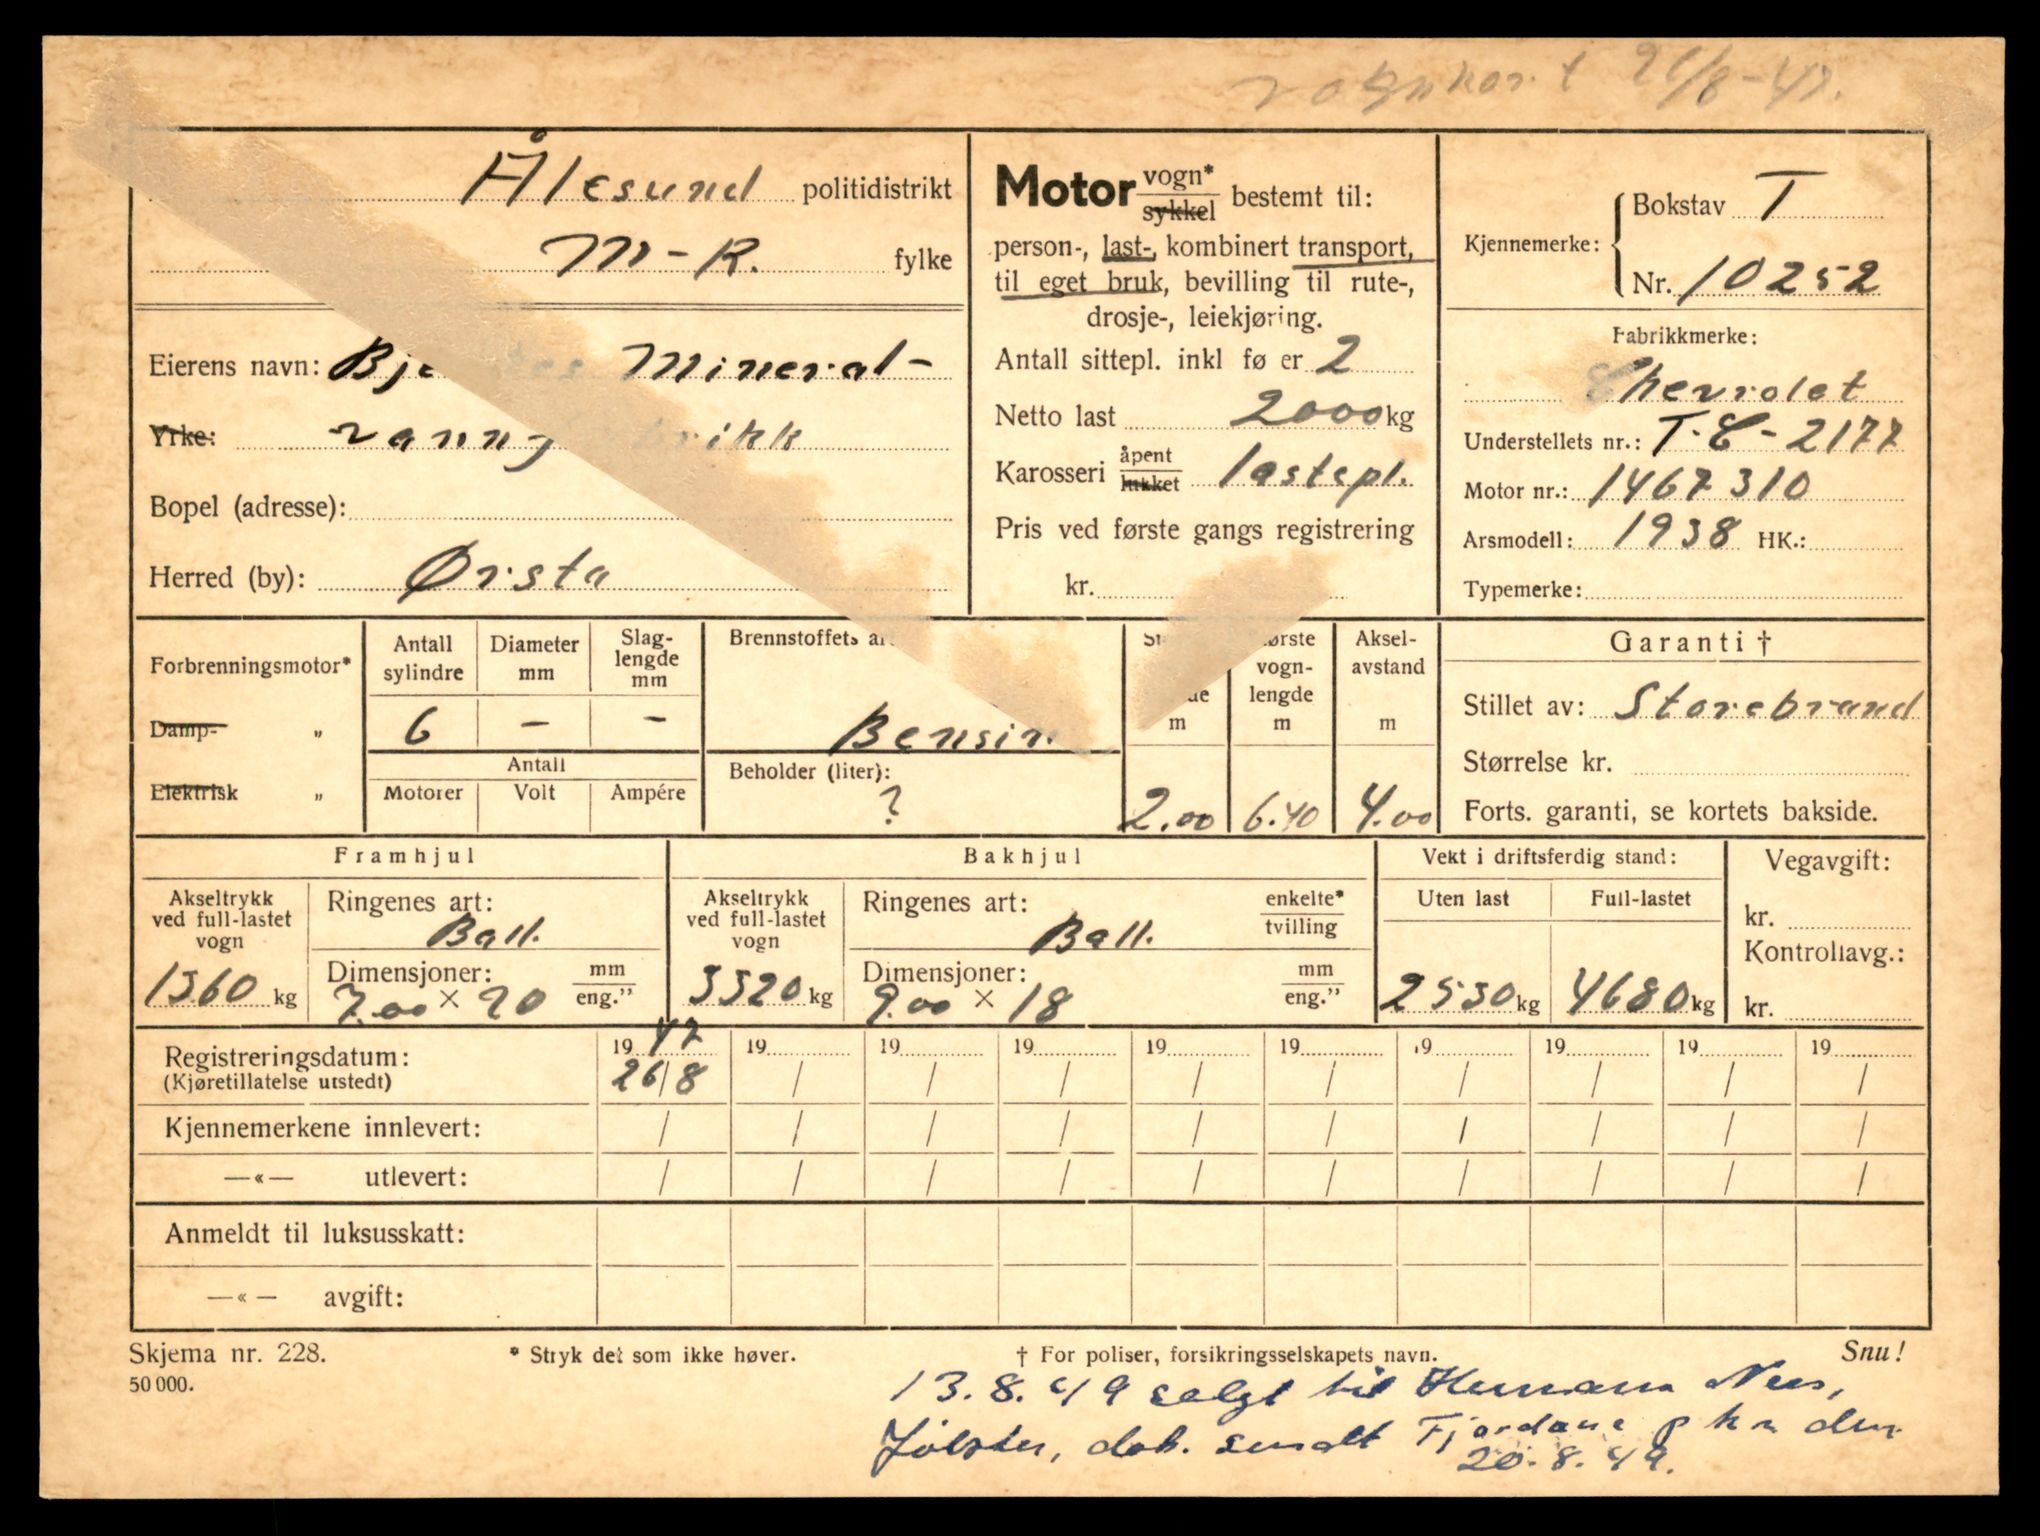 vognkort 26/8-47.
Ålesund politidistrikt
M-R. fylke
Eierens navn: Mineral-
Yrke: vannf rikk
Bopel (adresse):
Herred (by): Ørsta
Motor vogn* sykkel bestemt til:
person-, last-, kombinert transport,
til eget bruk, bevilling til rute-,
drosje-, leiekjøring.
Antall sittepl. inkl fø er 2
Netto last 2000 kg
Karosseri åpent lukket lastepl.
Pris ved første gangs registrering
kr.
Kjennemerke: Bokstav T
Nr. 10252
Fabrikkmerke:
Chevrolet
Understellets nr.: T.C-2177
Motor nr.: 1467310
Arsmodell: 1938 HK.:
Typemerke:
Forbrenningsmotor*
Damp- „
Elektrisk „
Antall sylindre Diameter mm Slag-lengde mm
6 – –
Antall
Motorer Volt Ampére
Brennstoffets
Bensin
Beholder (liter):
?
m
2.00
vogn-lengde m
6.40
Aksel-avstand m
4.00
Garanti †
Stillet av: Storebrand
Størrelse kr.
Forts. garanti, se kortets bakside.
Framhjul
Akseltrykk ved full-lastet vogn
1360 kg
Ringenes art:
Ball.
Dimensjoner: mm eng.”
7.00 × 20
Bakhjul
Akseltrykk ved full-lastet vogn
3320 kg
Ringenes art: enkelte* tvilling
Ball.
Dimensjoner: mm eng.”
9.00 × 18
Vekt i driftsferdig stand:
Uten last Full-lastet
2530 kg 4680 kg
Vegavgift:
kr.
Kontrollavg.:
kr.
Registreringsdatum: 1947 19 19 19 19 19 19 19 19 19
(Kjøretillatelse utstedt) 26/8 / / / / / / / / /
Kjennemerkene innlevert: / / / / / / / / / /
—«— utlevert: / / / / / / / / / /
Anmeldt til luksusskatt:
—«— avgift:
Skjema nr. 228. * Stryk det som ikke høver. † For poliser, forsikringsselskapets navn. Snu!
50 000.
13.8.49 solgt til Hermann Nes,
Jølster, dok. sendt Fjordane pkm den
20.8.49.